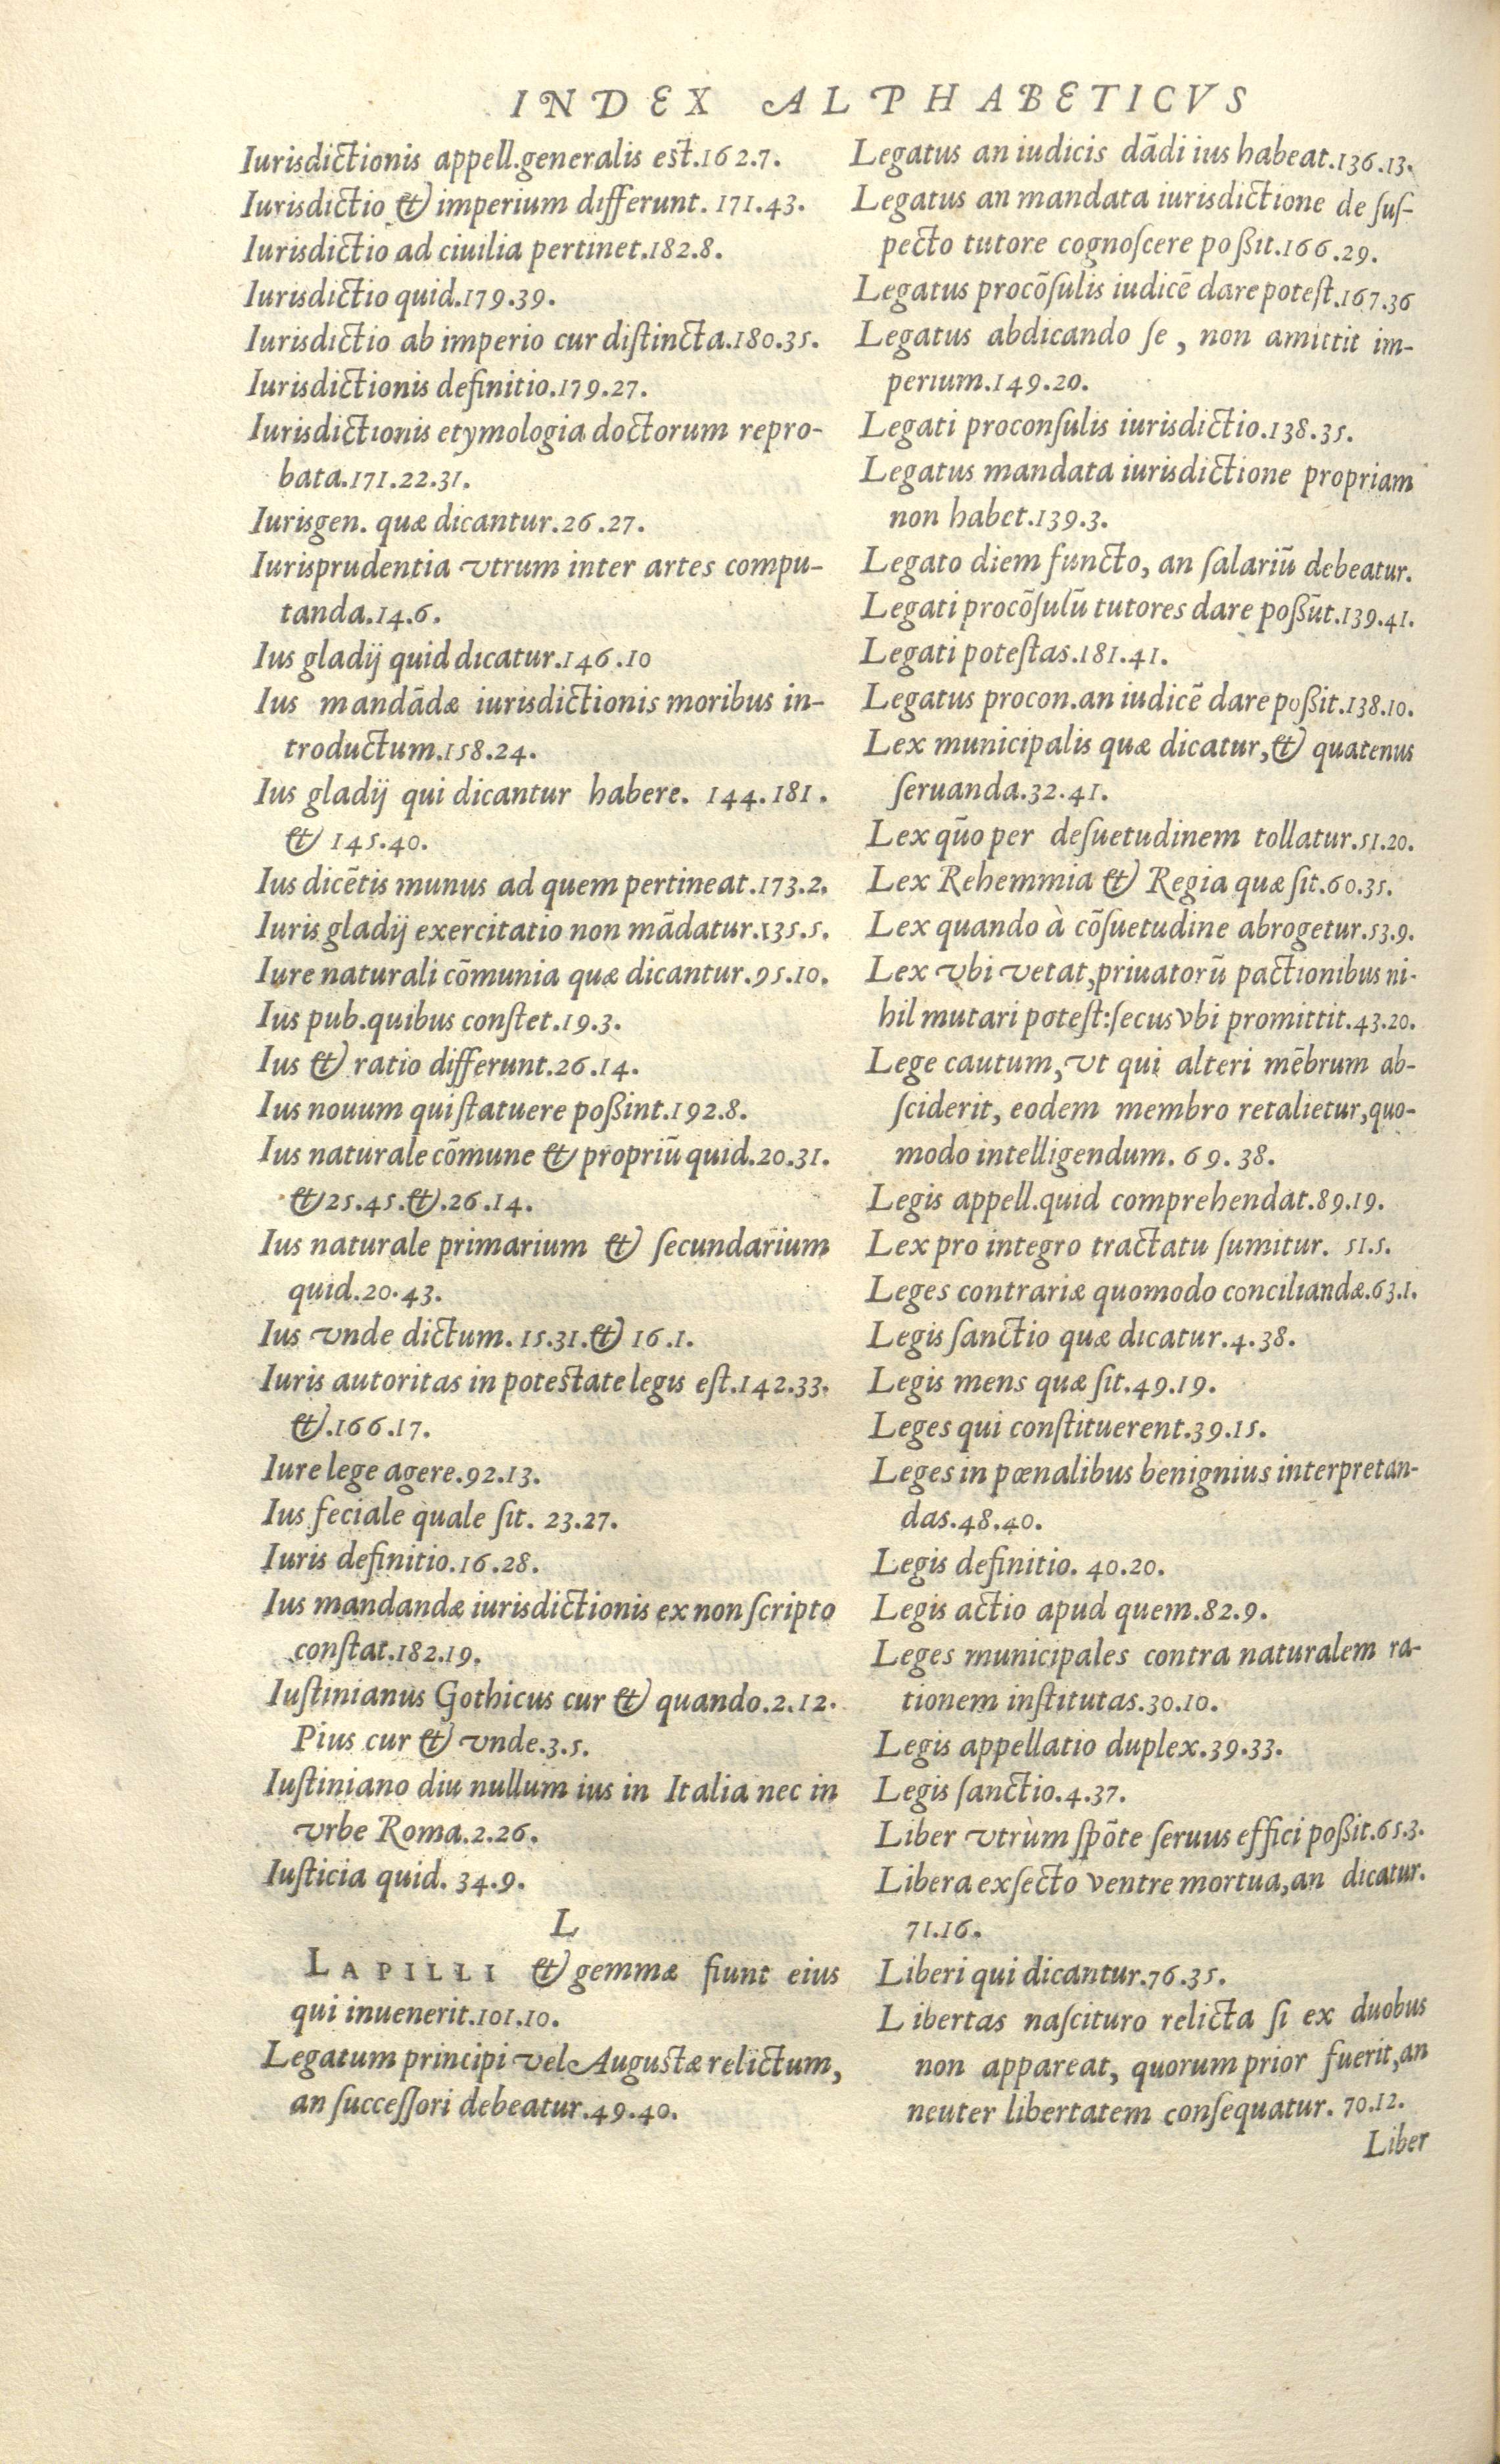 INDEX ALPHABETICVS
Iurisdictionis appell.generalis est.162.7.
Iurisdictio & imperium differunt. 171.43.
Iurisdictio ad ciuilia pertinet.182.8.
Iurisdictio quid.179.39.
Iurisdictio ab imperio cur diſtincta.180.35.
Iurisdictionis definitio.179.27.
Iurisdictionis etymologia doctorum repro-
bata.171.22.31.
Iurisgen. quæ dicantur.26.27.
Iurisprudentia vtrum inter artes compu-
tanda.14.6.
Ius gladij quid dicatur.146.10
Ius mandãdæ iurisdictionis moribus in-
troductum.158.24.
Ius gladij qui dicantur habere. 144.181.
& 145.40.
Ius dicẽtis munus ad quem pertineat.173.2.
Iuris gladij exercitatio non mãdatur.135.5.
Iure naturali cõmunia quæ dicantur.95.10.
Ius pub.quibus conſtet.19.3.
Ius & ratio differunt.26.14.
Ius nouum qui ſtatuere poßint.192.8.
Ius naturale cõmune & propriũ quid.20.31.
& 25.45.&.26.14.
Ius naturale primarium & ſecundarium
quid.20.43.
Ius vnde dictum. 15.31.& 16.1.
Iuris autoritas in potestate legis eſt.142.33.
&.166.17.
Iure lege agere.92.13.
Ius feciale quale ſit. 23.27.
Iuris definitio.16.28.
Ius mandandæ iurisdictionis ex non ſcripto
conſtat.182.19.
Iuſtinianus Gothicus cur & quando.2.12.
Pius cur & vnde.3.5.
Iuſtiniano diu nullum ius in Italia nec in
vrbe Roma.2.26.
Iuſticia quid. 34.9.
L
LAPILLI & gemmæ fiunt eius
qui inuenerit.101.10.
Legatum principi vel Augustæ relictum,
an ſucceſſori debeatur.49.40.
Legatus an iudicis dãdi ius habeat.136.13.
Legatus an mandata iurisdictione de ſuſ-
pecto tutore cognoſcere poßit.166.29.
Legatus procõſulis iudicẽ dare poteſt.167.36
Legatus abdicando ſe, non amittit im-
perium.149.20.
Legati proconſulis iurisdictio.138.35.
Legatus mandata iurisdictione propriam
non habet.139.3.
Legato diem functo, an ſalariũ debeatur.
Legati procõſulũ tutores dare poßũt.139.41.
Legati poteſtas.181.41.
Legatus procon.an iudicẽ dare poßit.138.10.
Lex municipalis quæ dicatur,& quatenus
ſeruanda.32.41.
Lex qũo per deſuetudinem tollatur.51.20.
Lex Rehemmia & Regia quæ ſit.60.35.
Lex quando à cõſuetudine abrogetur.53.9.
Lex vbi vetat,priuatorũ pactionibus ni-
hil mutari poteſt:ſecus vbi promittit.43.20.
Lege cautum,vt qui alteri mẽbrum ab-
ſciderit, eodem membro retalietur,quo-
modo intelligendum. 69.38.
Legis appell.quid comprehendat.89.19.
Lex pro integro tractatu ſumitur. 51.5.
Leges contrariæ quomodo conciliandæ.63.1.
Legis ſanctio quæ dicatur.4.38.
Legis mens quæ ſit.49.19.
Leges qui conſtituerent.39.15.
Leges in pœnalibus benignius interpretan-
das.48.40.
Legis definitio. 40.20.
Legis actio apud quem.82.9.
Leges municipales contra naturalem ra-
tionem inſtitutas.30.10.
Legis appellatio duplex.39.33.
Legis ſanctio.4.37.
Liber vtrùm ſpõte ſeruus effici poßit.65.3.
Libera exſecto ventre mortua,an dicatur.
71.16.
Liberi qui dicantur.76.35.
Libertas naſcituro relicta ſi ex duobus
non appareat, quorum prior fuerit,an
neuter libertatem conſequatur. 70.12.
Liber